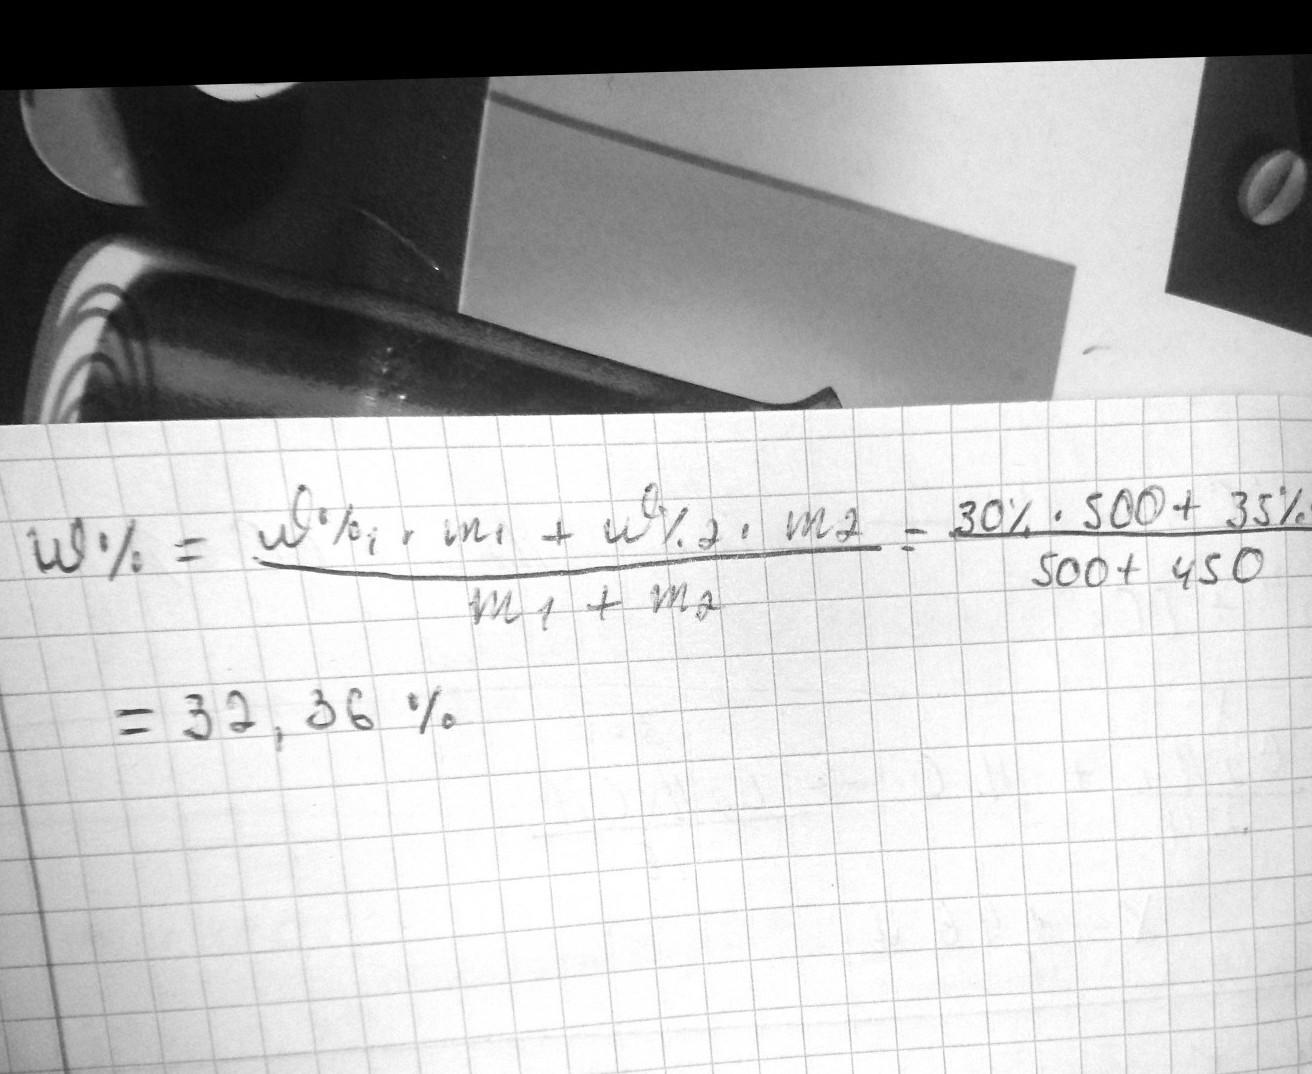 w% = w%₁ · m₁ + w%₂ · m₂ / m₁ + m₂ = 30% · 500 + 35% / 500 + 450
= 32,36 %